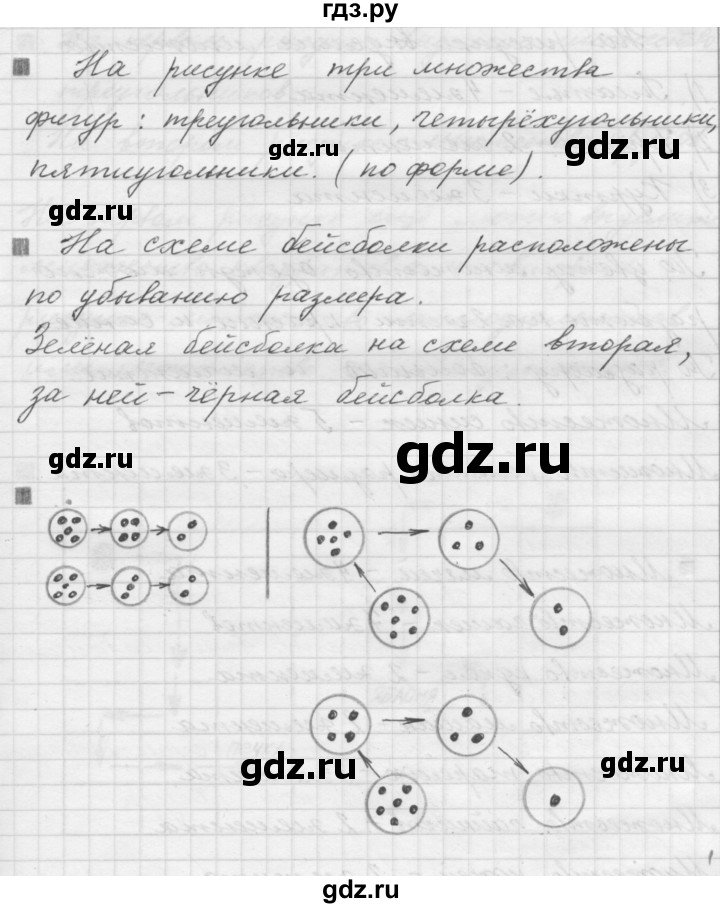 гдз.ру
На рисунке три множества
фигур: треугольники, четырёхугольники,
gdz.ru
gdz.ru
пятиугольники. (по форме).
gdz.ru
На схеме бейсболки расположены
по убыванию размера.
Зелёная бейсболка на схеме вторая,
за ней – чёрная бейсболка.
gdz.ru
gdz.ru
gdz.ru
gdz.ru
gdz.ru